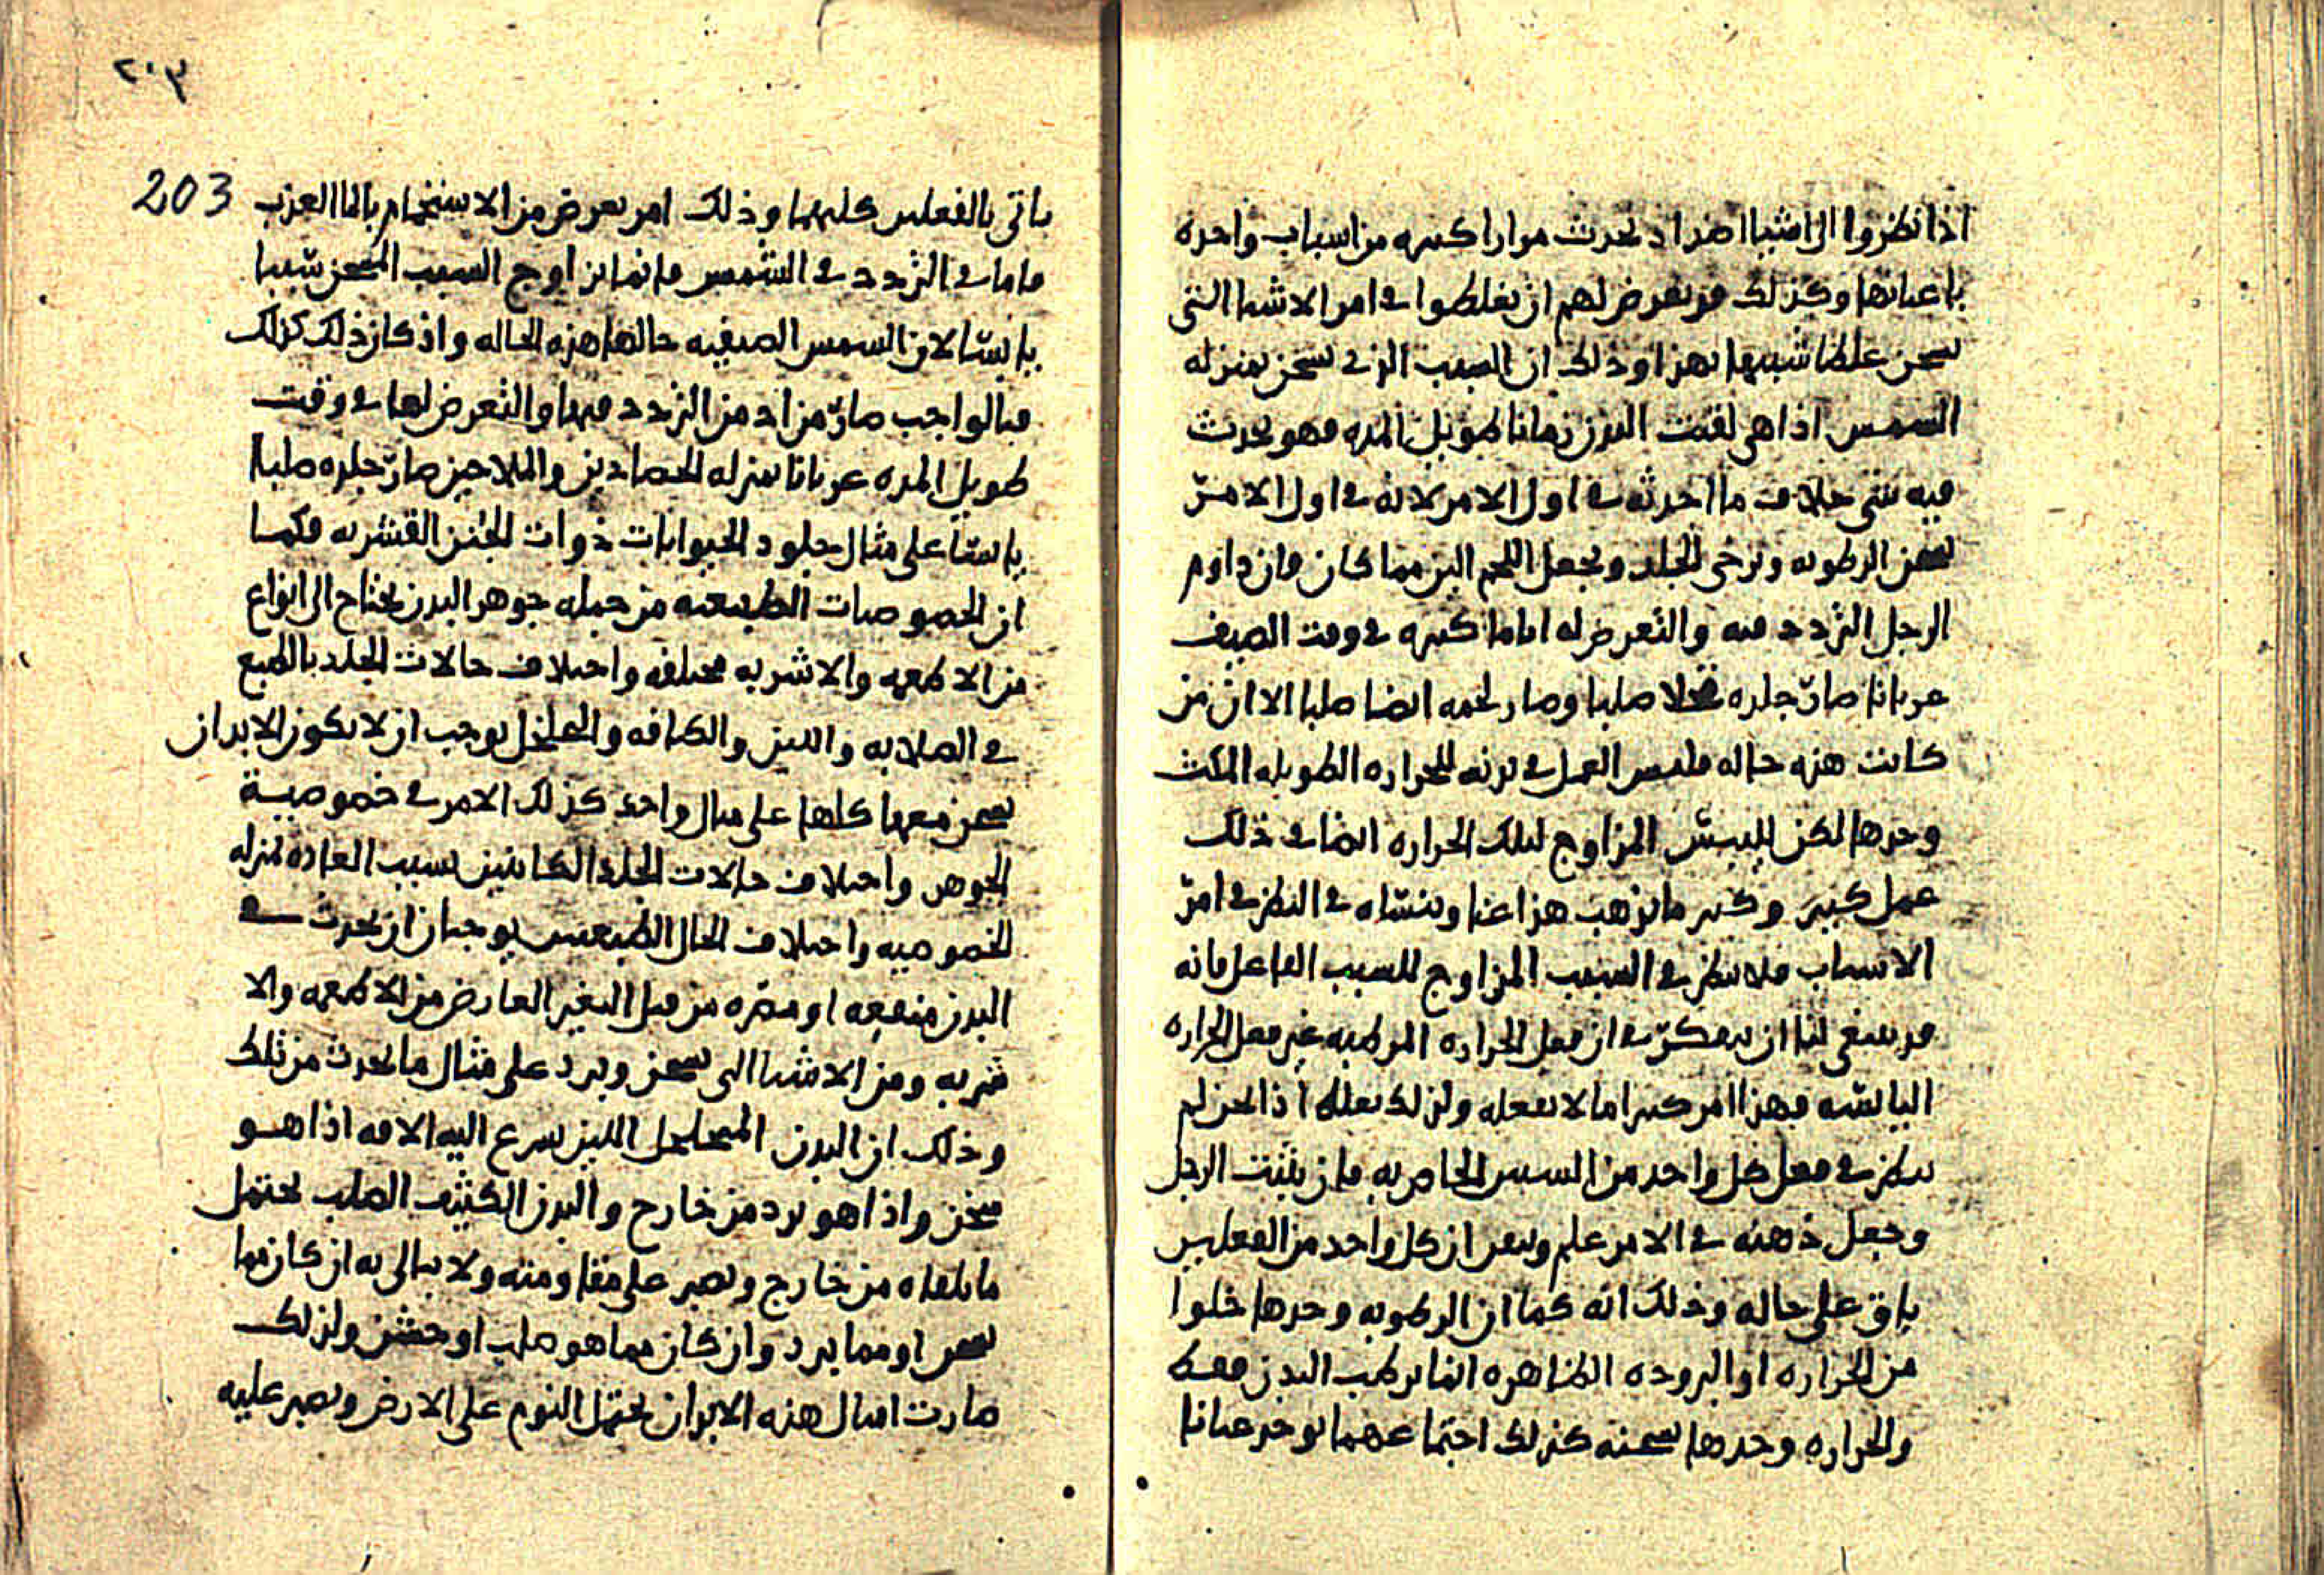 اذا نظروا الى اشيا اضداد تحدث مرارا كثيره من اسباب واحده
باعيانها وكذلك قد يعرض لهم ان يغلطوا في امر الاشيا التي
تسخن غلطا شبيها بهذا وذلك ان السبب الذي يسخن بمنزله
الشمس اذا هي لقيت البدن زمانا طويل المده فهو يحدث
فيه شي خلاف ما احدثه في اول الامر لانه في اول الامر
يسخن الرطوبه ويرخي الجلد ويجعل اللحم الين مما كان فان داوم
الرجل التردد فيه والتعرض له اياما كثيره في وقت الصيف
عريانا صار جلده قحلا صلبا وصار لحمه ايضا صلبا الا ان من
كانت هذه حاله فليس العمل في بدنه للحراره الطويله المكث
وحدها لكن لليبس المزاوج لتلك الحراره ايضا في ذلك
عمل كبير وكثير ما يذهب هذا عنا وننساه في النظر في امر
الاسباب فلا ننظر في السبب المزاوج للسبب الفاعل فانه
قد ينبغي لنا ان نفكر في ان فعل الحراره الرطبه غير فعل الحراره
اليابسه فهذا امر كثيرا ما لا نفعله ولذلك نغلط اذا نحن لم
ننظر في فعل كل واحد من السببين الخاص به فان تثبت الرجل
وجعل ذهنه في الامر علم وتيقن ان كل واحد من الفعلين
باق على حاله وذلك انه كما ان الرطوبه وحدها خلوا
من الحراره او البروده الظاهره انما يرطب البدن فقط
والحراره وحدها تسخنه كذلك اجتماعهما يوجد عيانا
ياتي بالفعلين كليهما وذلك امر يعرض من الاستحمام بالما العذب
فاما في التردد في الشمس فانما يزاوج السبب المسخن شيبا
يابسا لان الشمس الصيفيه حالها هذه الحاله واذ كان ذلك كذلك
فبالواجب صار من ادمن التردد فيها والتعرض لها في وقت
طويل المده عريانا بمنزله الحصادين والملاحين صار جلده صلبا
يابسا على مثال جلود الحيوانات ذوات الجثث القشريه فكما
ان الخصوصيات الطبيعيه من جمله جوهر البدن يحتاج الى انواع
من الاطعمه والاشربه مختلفه واختلاف حالات الجلد بالطبع
في الصلابه واللين والكثافه والتخلخل يوجب ان لا تكون الابدان
تسخن معها كلها على مثال واحد كذلك الامر في خصوصية
الجوهر واختلاف حالات الجلد الكائنين بسبب العاده بمنزله
الخصوصيه واختلاف الحال الطبيعيين يوجبان ان يحدث في
البدن منفعه او مضره من قبل التغير العارض من الاطعمه والا
شربه ومن الاشيا التي تسخن وتبرد على مثال ما يحدث من تلك
وذلك ان البدن المتخلخل اللين يسرع اليه الافه اذا هو
سخن واذا هو برد من خارج والبدن الكثيف الصلب يحتمل
ما يلقاه من خارج ويصبر على مقاومته ولا يبالي به ان كان مما
يسخن او مما يبرد وان كان مما هو صلب او خشن ولذلك
صارت امثال هذه الابدان تحتمل النوم على الارض ويصبر عليه
٢٠٣
203